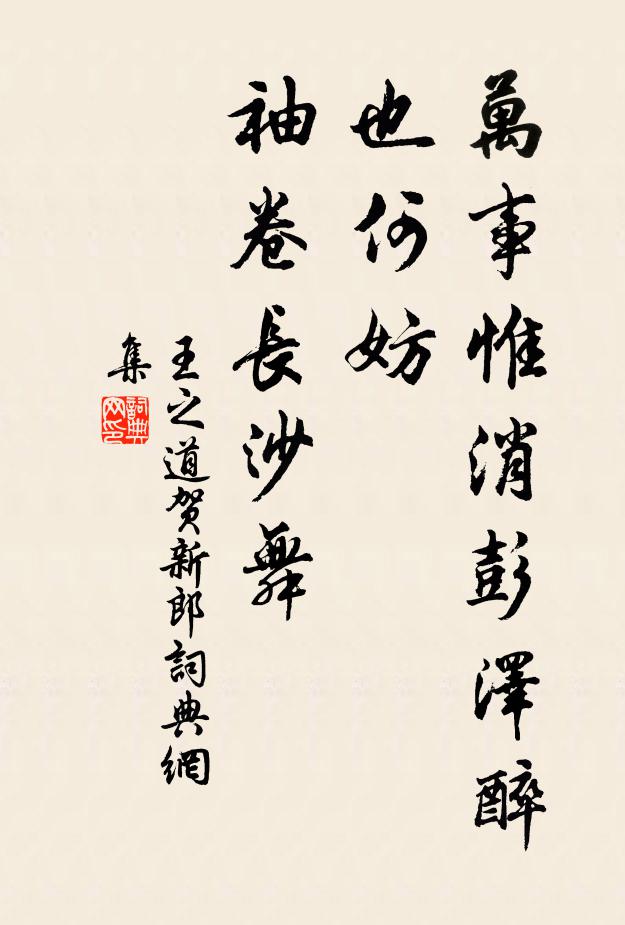 萬事惟消彭澤醉
也何妨
袖卷長沙舞
王之道賀新郎詞典網
集
詞典
网印